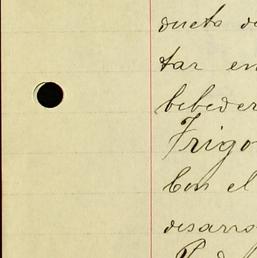 ducto d
tar en
bebeder
Frigo
Con el
desarro